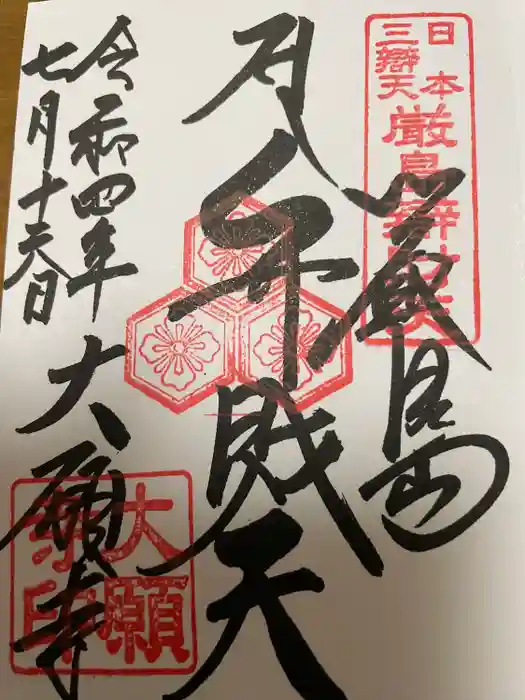 日本
三辨天
厳島辨財天
厳島
弁財天
令和四年
七月十六日
大願寺
大願
寺印